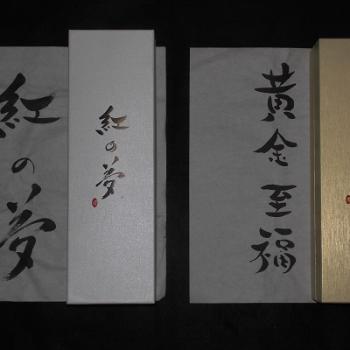 紅の夢
紅の夢
黄金至福